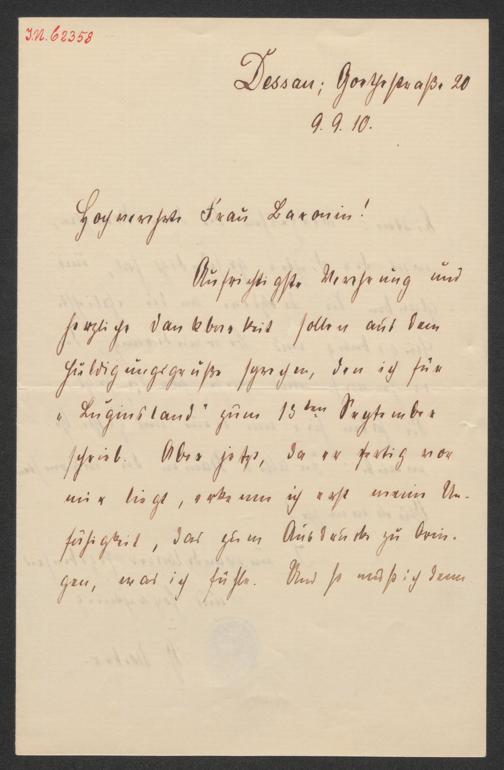 J.N. 62358
Dessau; Goethestraße 20
9. 9. 10.
Hochverehrte Frau Baronin!
Aufrichtigste Verehrung und
herzliche Dankbarkeit sollen aus dem
Huldigungsgruße sprechen, den ich für
„Luginsland" zum 13ten September
schrieb. Aber jetzt, da er fertig vor
mir liegt, erkenne ich erst meine Un-
fähigkeit, das zum Ausdrucke zu brin-
gen, was ich fühle. Und so muß ich denn